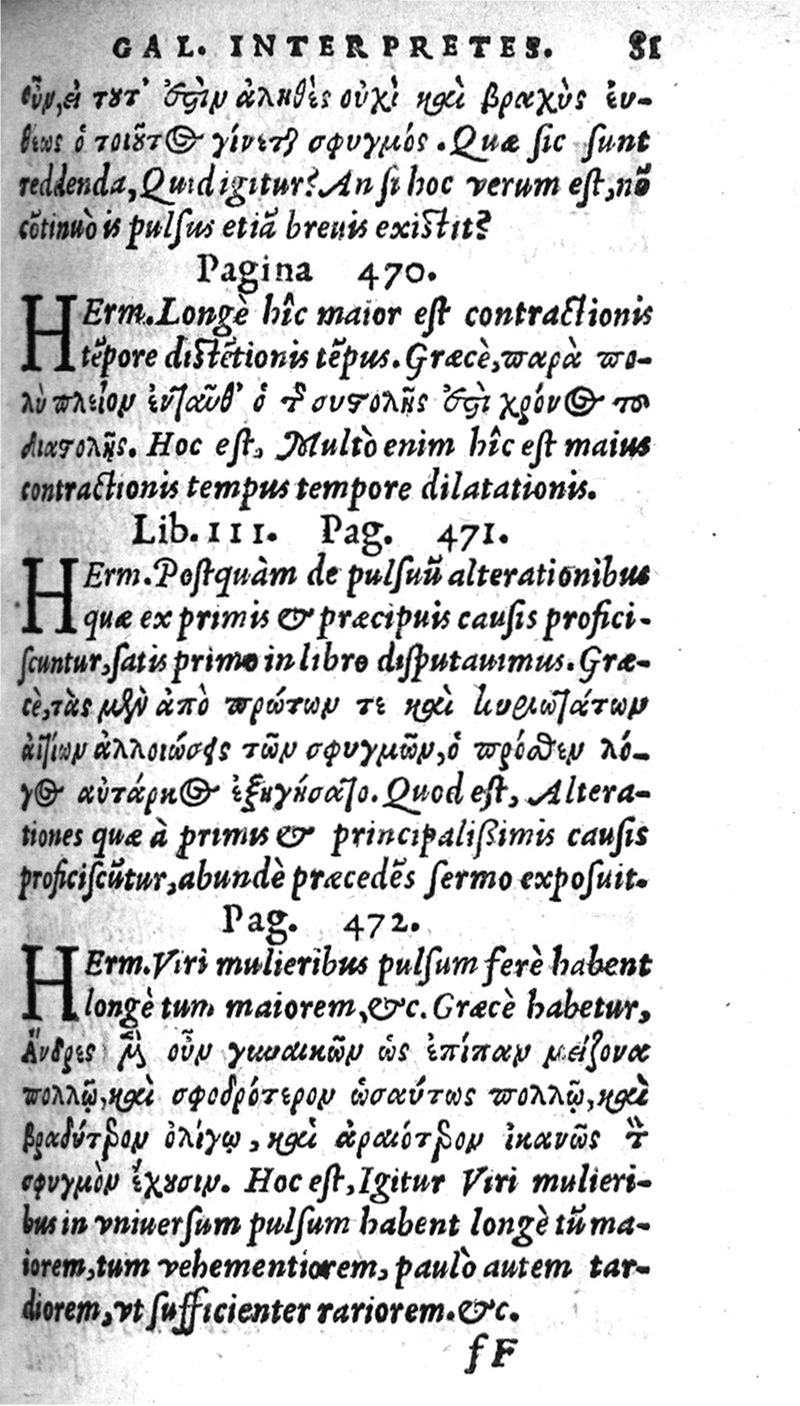 GAL. INTERPRETES. 81
οὖν, εἰ τουτ' ἐστὶν ἀληθὲς οὐχὶ καὶ βραχὺς ἐυ-
θέως ὁ τοιοῦτος γίνεται σφυγμός. Quæ sic sunt
reddenda, Quid igitur? An si hoc verum est, nō
cōtinuò is pulsus etiā breuis existit?
Pagina 470.
HErm. Longè hîc maior est contractionis
tēpore distētionis tēpus. Græcè, παρὰ πο-
λὺ πλεῖον ἐνταῦθ' ὁ τῆς συστολῆς ἐστὶ χρόνος τῶ
διαστολῆς. Hoc est, Multò enim hîc est maius
contractionis tempus tempore dilatationis.
Lib. III. Pag. 471.
HErm. Postquàm de pulsuū alterationibus
quæ ex primis & præcipuis causis profici-
scuntur, satis primo in libro disputauimus. Græ-
cè, τὰς μὲν ἀπὸ πρώτων τε καὶ κυριωτάτων
ἀιτίων ἀλλοιώσεις τῶν σφυγμῶν, ὁ πρόσθεν λό-
γος αὐτάρκος ἐξηγήσατο. Quod est, Altera-
tiones quæ à primis & principalißimis causis
proficiscūtur, abundè præcedēs sermo exposuit.
Pag. 472.
HErm. Viri mulieribus pulsum ferè habent
longè tum maiorem, &c. Græcè habetur,
Ἄνδρες μὲν οὖν γυναικῶν ὡς ἐπίπαν μείζονα
πολλῷ, καὶ σφοδρότερον ὡσαύτως πολλῷ, καὶ
βραδύτερον ὀλίγῳ, καὶ ἀραιότερον ἱκανῶς τὸν
σφυγμὸν ἔχουσιν. Hoc est, Igitur Viri mulieri-
bus in vniuersum pulsum habent longè tū ma-
iorem, tum vehementiorem, paulò autem tar-
diorem, vt sufficienter rariorem. &c.
f F